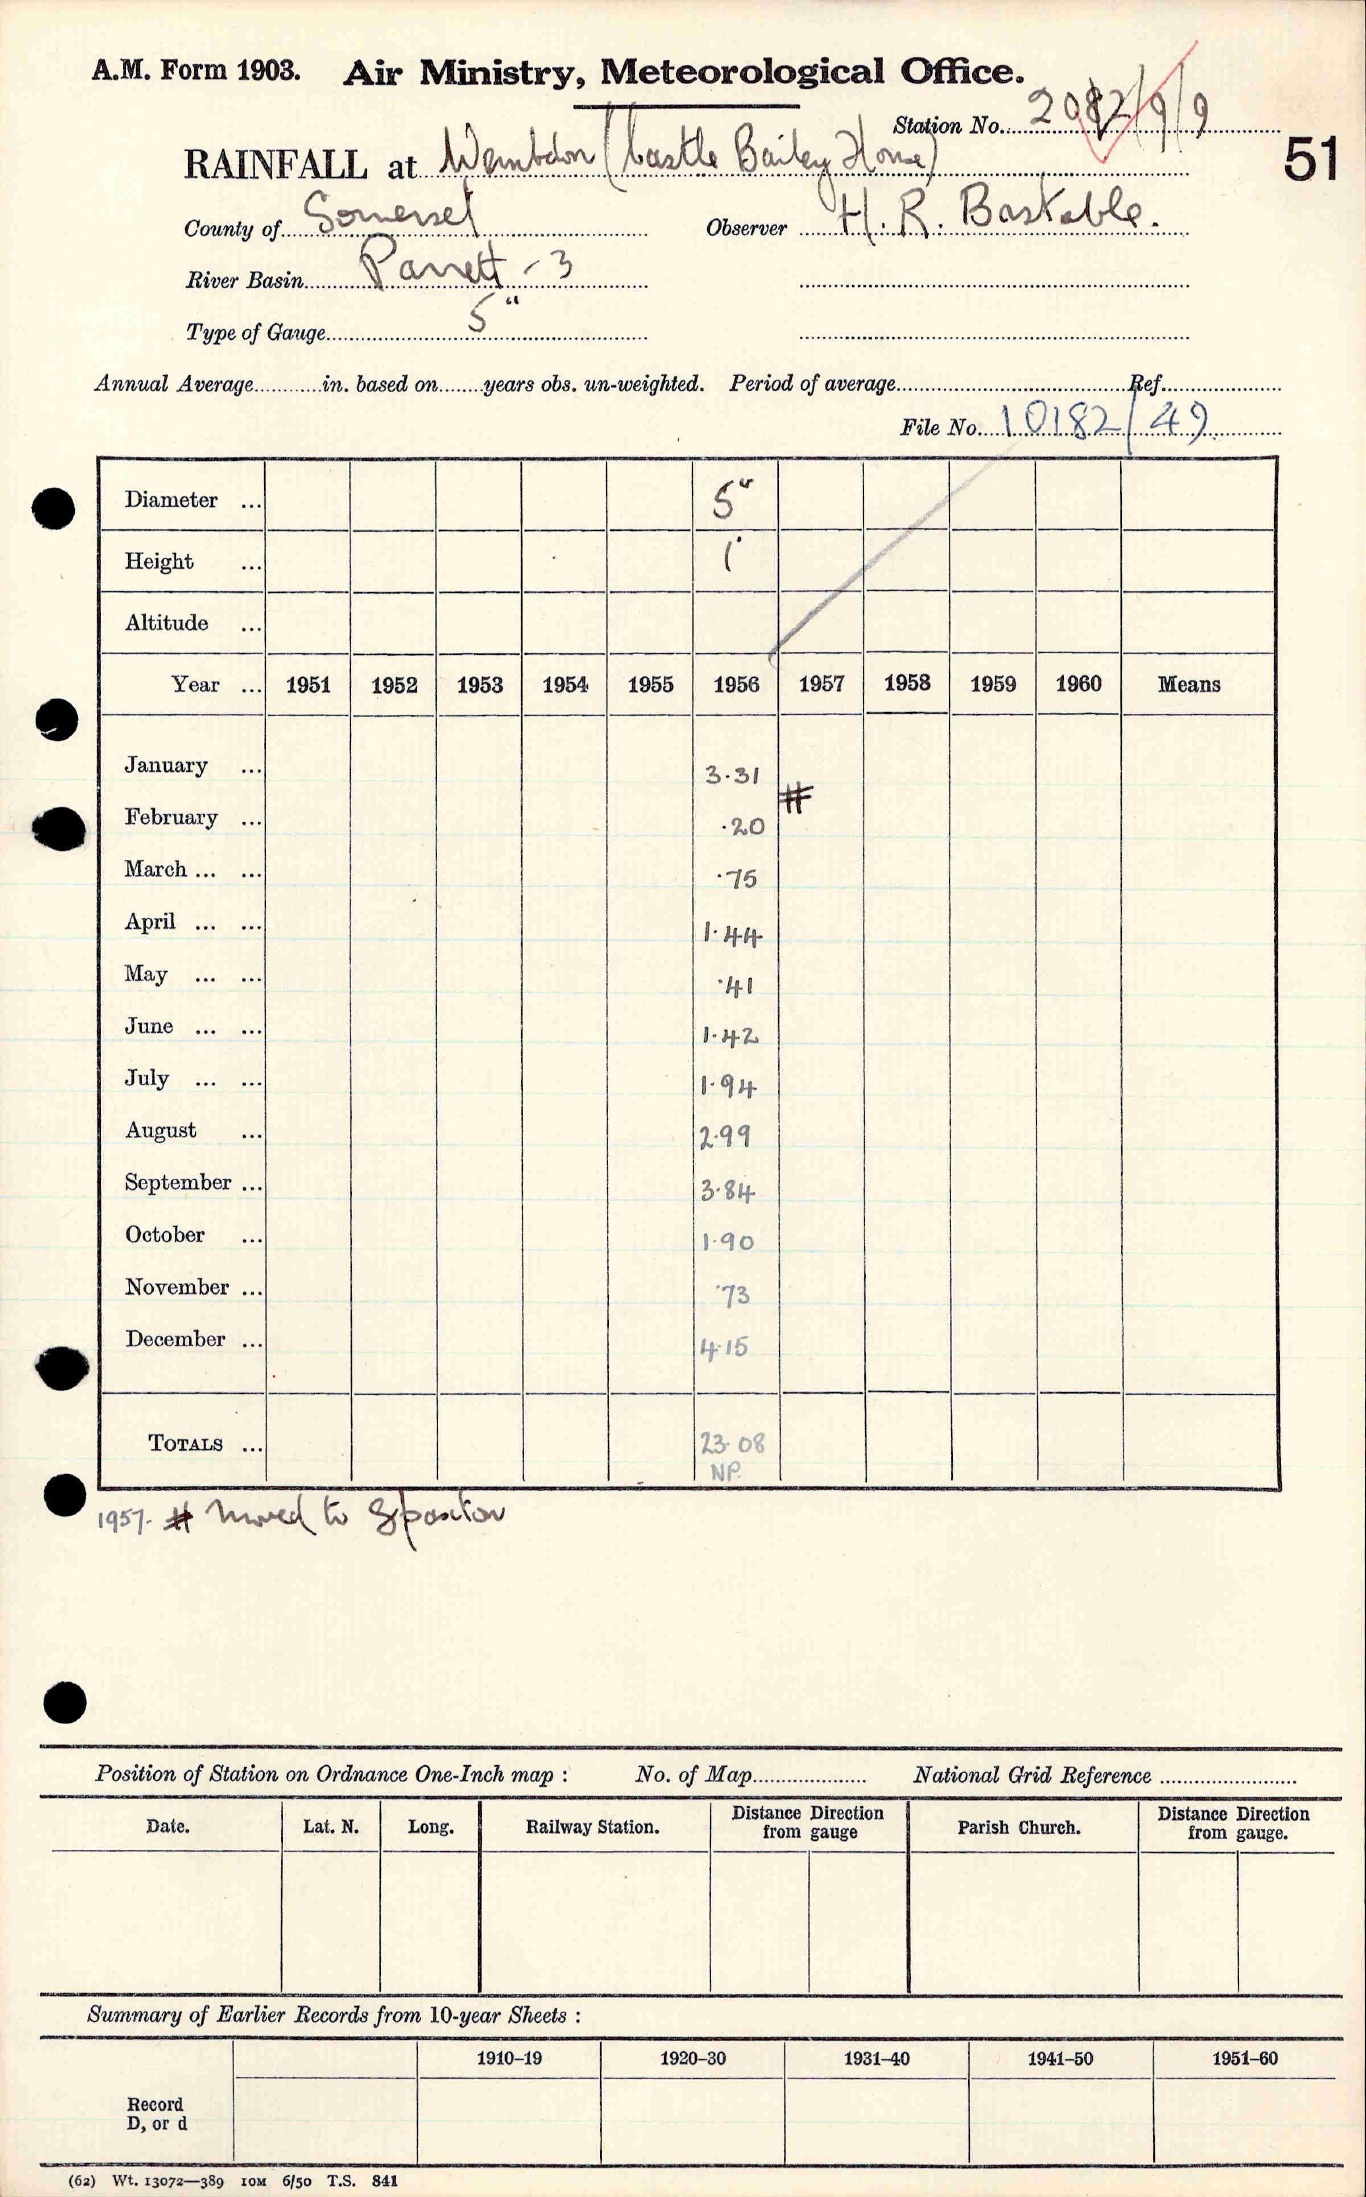 A.M. Form 1903. Air Ministry, Meteorological Office.
Station No. 2082/9/9
RAINFALL at Wembdon (Castle Bailey House)
51
County of Somerset Observer H. R. Bastable.
River Basin Parrett - 3
Type of Gauge 5"
Annual Average in. based on years obs. un-weighted. Period of average Ref.
File No. 10182/49
Diameter ... 5"
Height ... 1'
Altitude ...
Year ... 1951 1952 1953 1954 1955 1956 1957 1958 1959 1960 Means
January ... 3.31 #
February ... .20
March ... ... .75
April ... ... 1.44
May ... ... .41
June ... ... 1.42
July ... ... 1.94
August ... 2.99
September ... 3.84
October ... 1.90
November ... .73
December ... 4.15
TOTALS ... 23.08
NP.
1957. # Moved to Spaxton
Position of Station on Ordnance One-Inch map : No. of Map National Grid Reference
Date. Lat. N. Long. Railway Station. Distance Direction from gauge Parish Church. Distance Direction from gauge.
Summary of Earlier Records from 10-year Sheets :
1910–19 1920–30 1931–40 1941–50 1951–60
Record
D, or d
(62) Wt. 13072—389 10M 6/50 T.S. 841